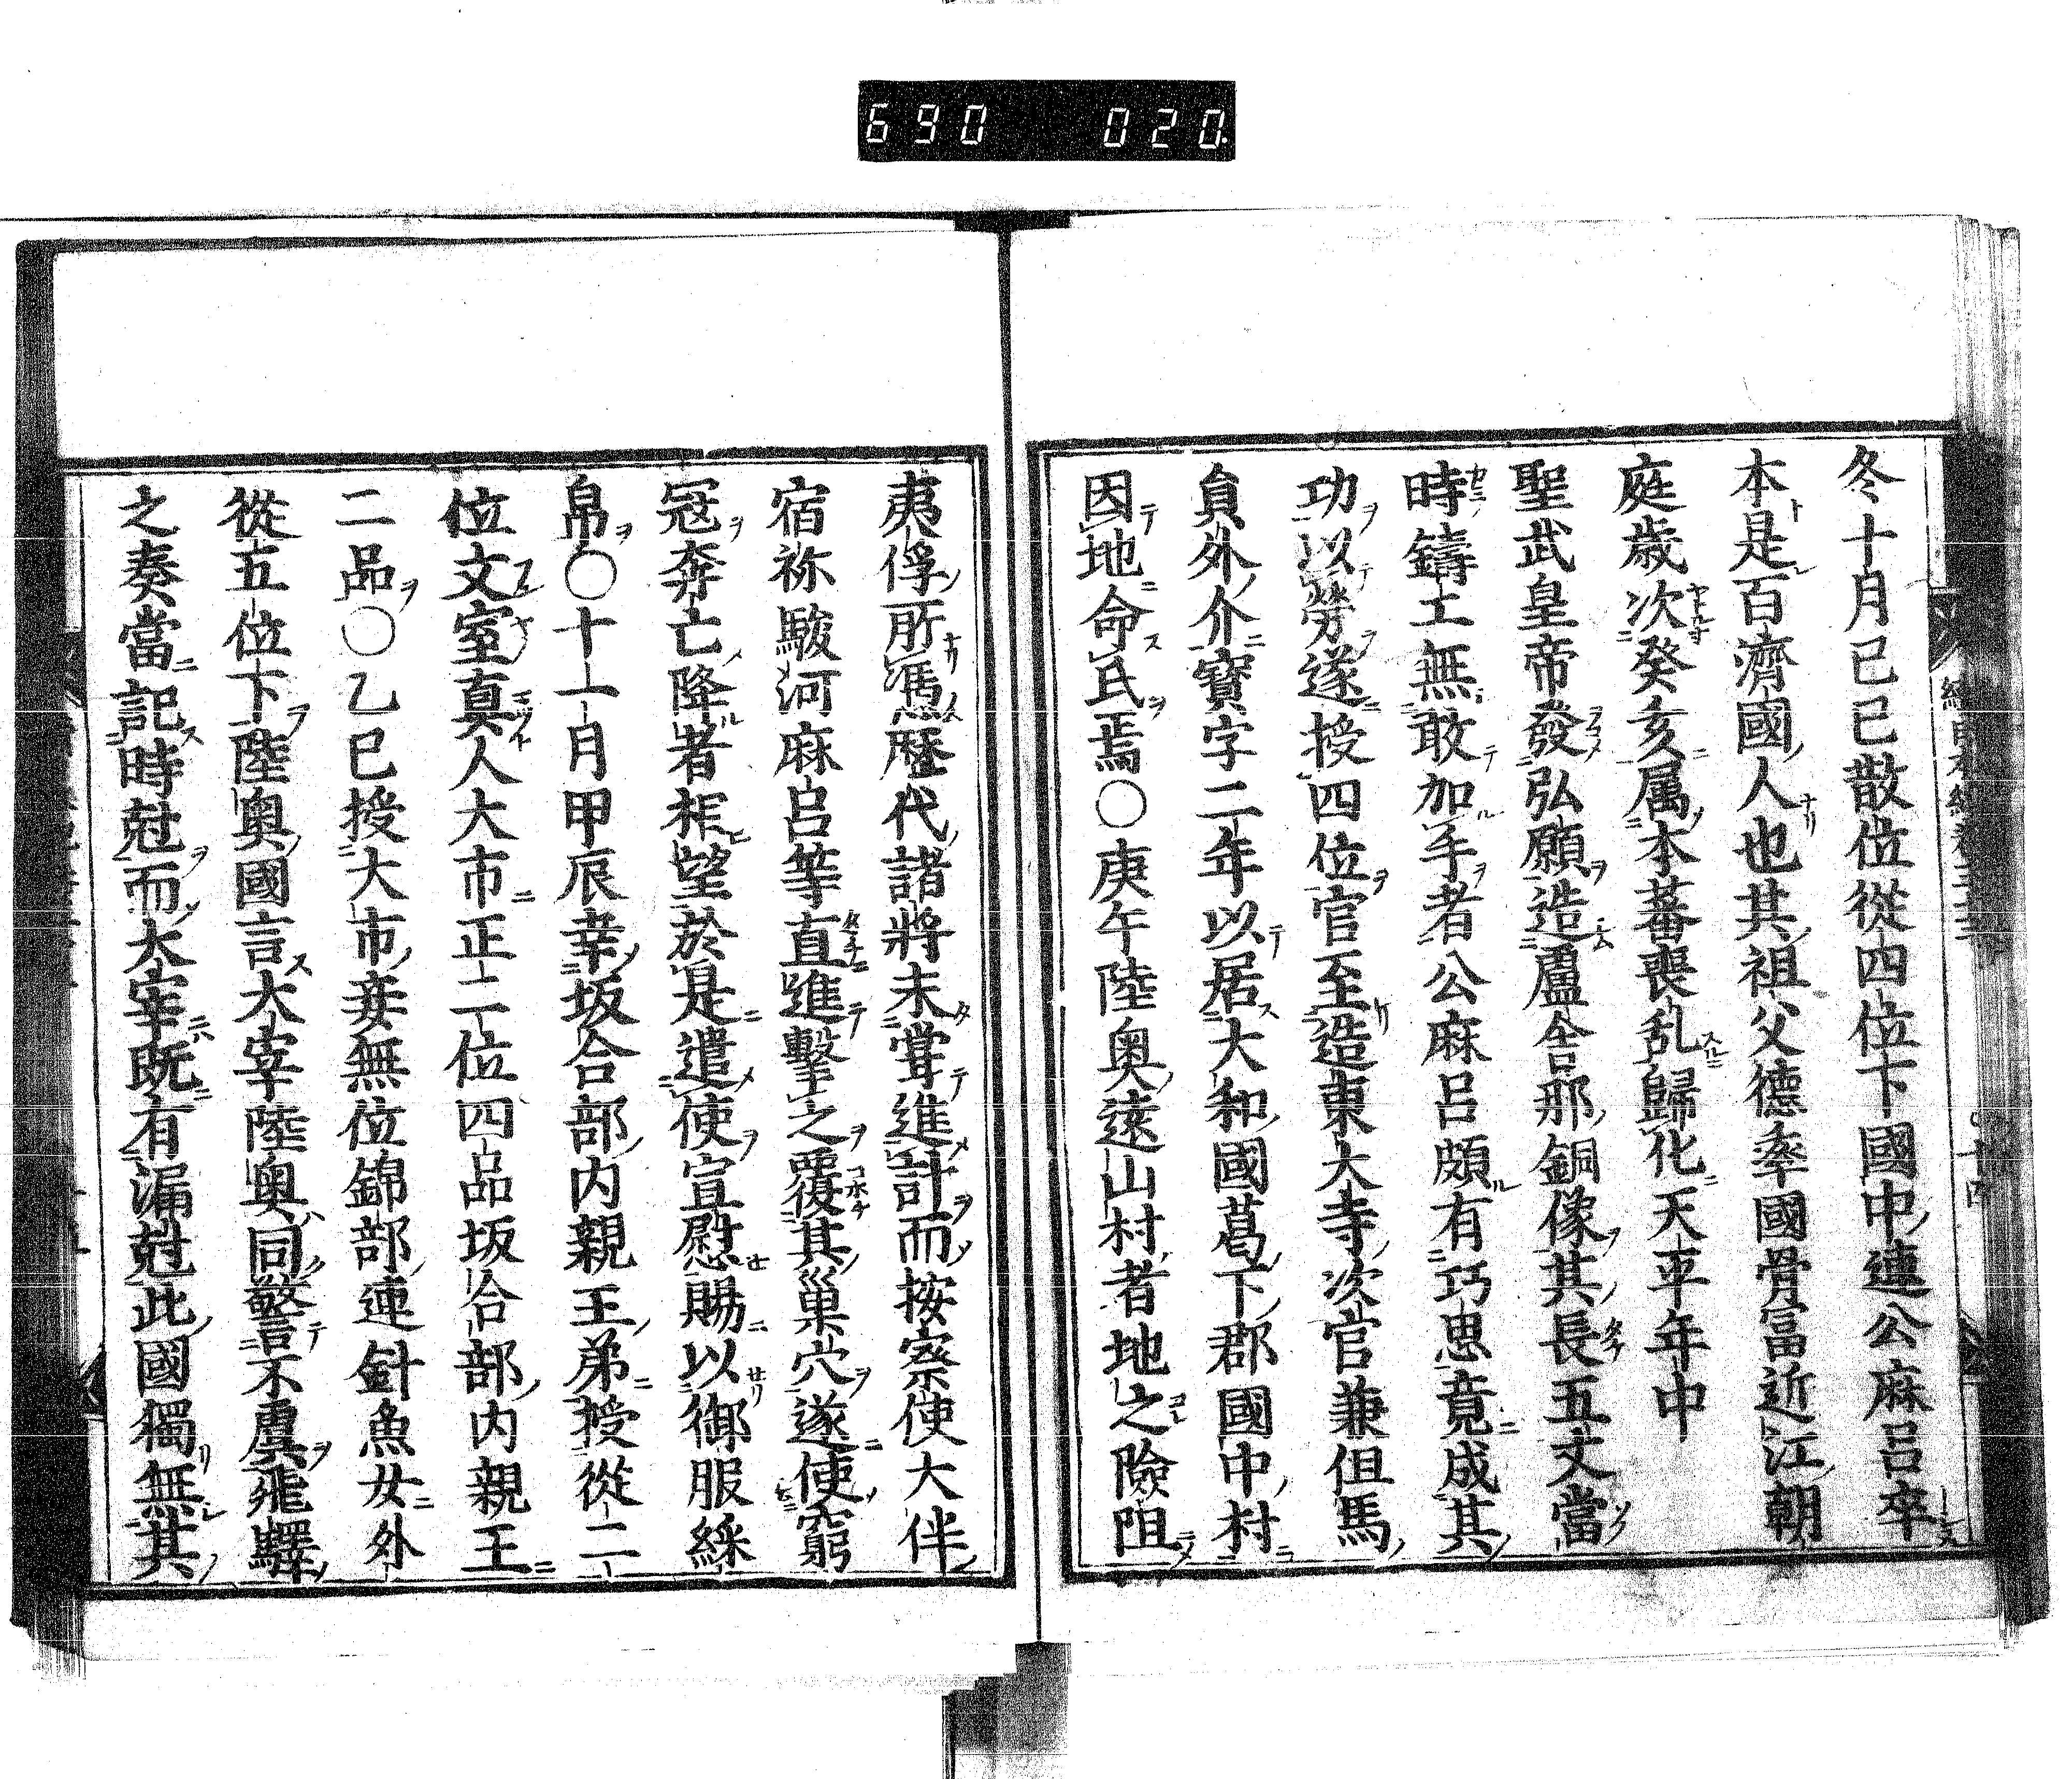 690 020
冬十月己巳散位從四位下國中連公麻呂卒
本是百濟國人也其祖父德率國骨富近江朝
庭歳次癸亥属本蕃喪乱歸化天平年中
聖武皇帝發弘願造盧舎那銅像其長五丈當
時鑄工無敢加手者公麻呂頗有巧思竟成其
功以勞遂授四位官至造東大寺次官兼但馬
貟外介寶字二年以居大和國葛下郡國中村
因地命氏焉〇庚午陸奥遠山村者地之險阻
夷俘所馮歴代諸將未甞進計而按察使大伴
宿祢駿河麻呂等直進擊之覆其巢穴遂使窮
冦奔亡降者相望於是遣使宣慰賜以御服綵
帛〇十一月甲辰幸坂合部内親王弟授從二
位文室真人大市正二位四品坂合部内親王
二品〇乙巳授大市妾無位錦部連針魚女外
從五位下陸奥國言大宰陸奥同警不虞飛驛
之奏當記時尅而大宰既有漏尅此國獨無其